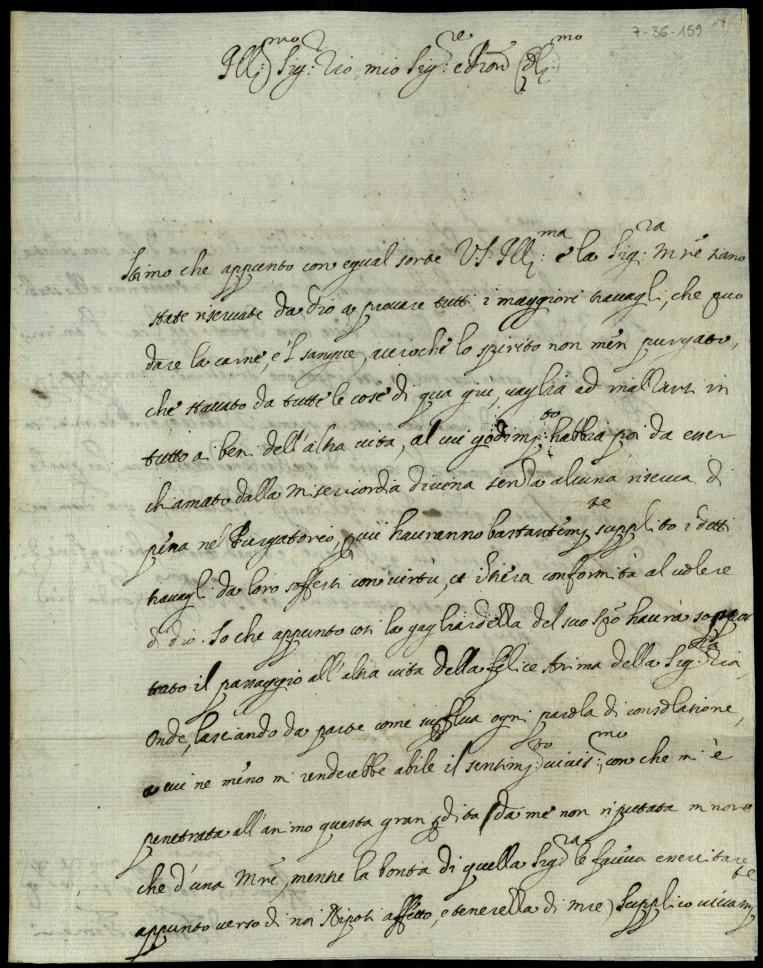 7-36-159
Ill:mo Sig:r Zio mio Sig:re e Pron
Stimo che appunto con egual sorte V.S. Ill:ma e la Sig:ra Mre siano
state riservate da Dio a provare tutti i maggiori travagli, che può
dare la carne, e 'l sangue, acciochè lo spirito non men purgato,
che staccato da tutte le cose di qua giù, vaglia ad in
tutto ai beni dell'altra vita, al cui godim:to habbia poi da esser
chiamato dalla Misericordia divina senza alcuna riserva di
pena nel Purgatorio, havranno bastantem:te supplito i detti
travagli da loro sofferti con virtù, et intiera conformità al volere
di Dio. So che appunto così la gagliardezza del suo Spo havrà soppor
tato il passaggio all'altra vita della felice Anima della Sig:ra Zia,
Onde, lasciando da parte come suplua ogni parola di consolatione,
a cui ne meno mi renderebbe abile il sentim:to vivis:mo con che mi è
penetrata all'animo questa gran pdita (da me non riputata minore
che d'una Mre, mentre la bontà di quella Sig:ra le faceva esercitare
appunto verso di noi Nipoti affetto, e tenerezza di Mre) Supplico vivam:te